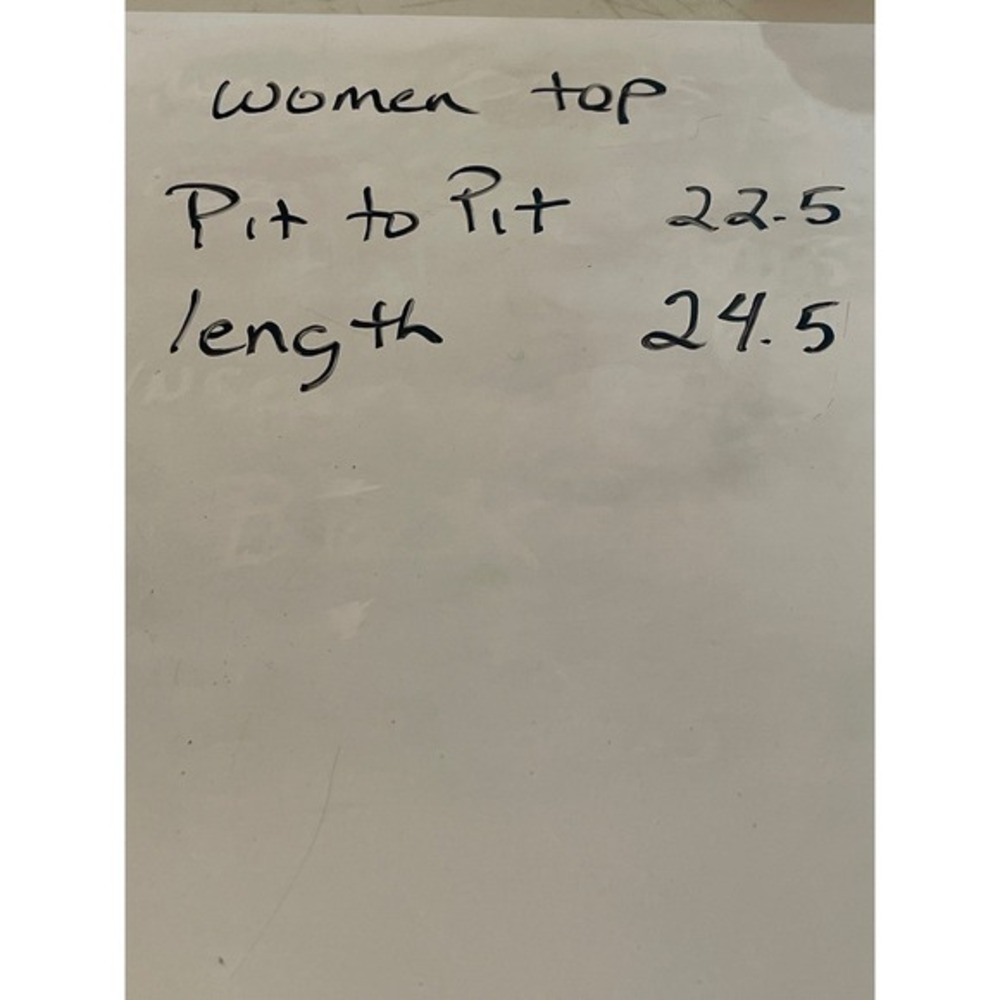 women top
Pit to Pit 22.5
length 24.5